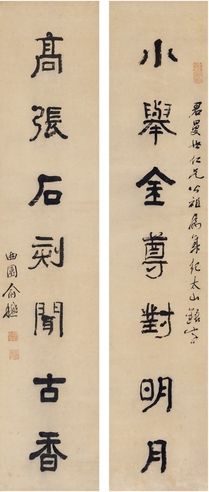 君曼世仁兄公祖屬集紀太山銘字
小舉金尊對明月
高張石刻聞古香
曲園俞樾